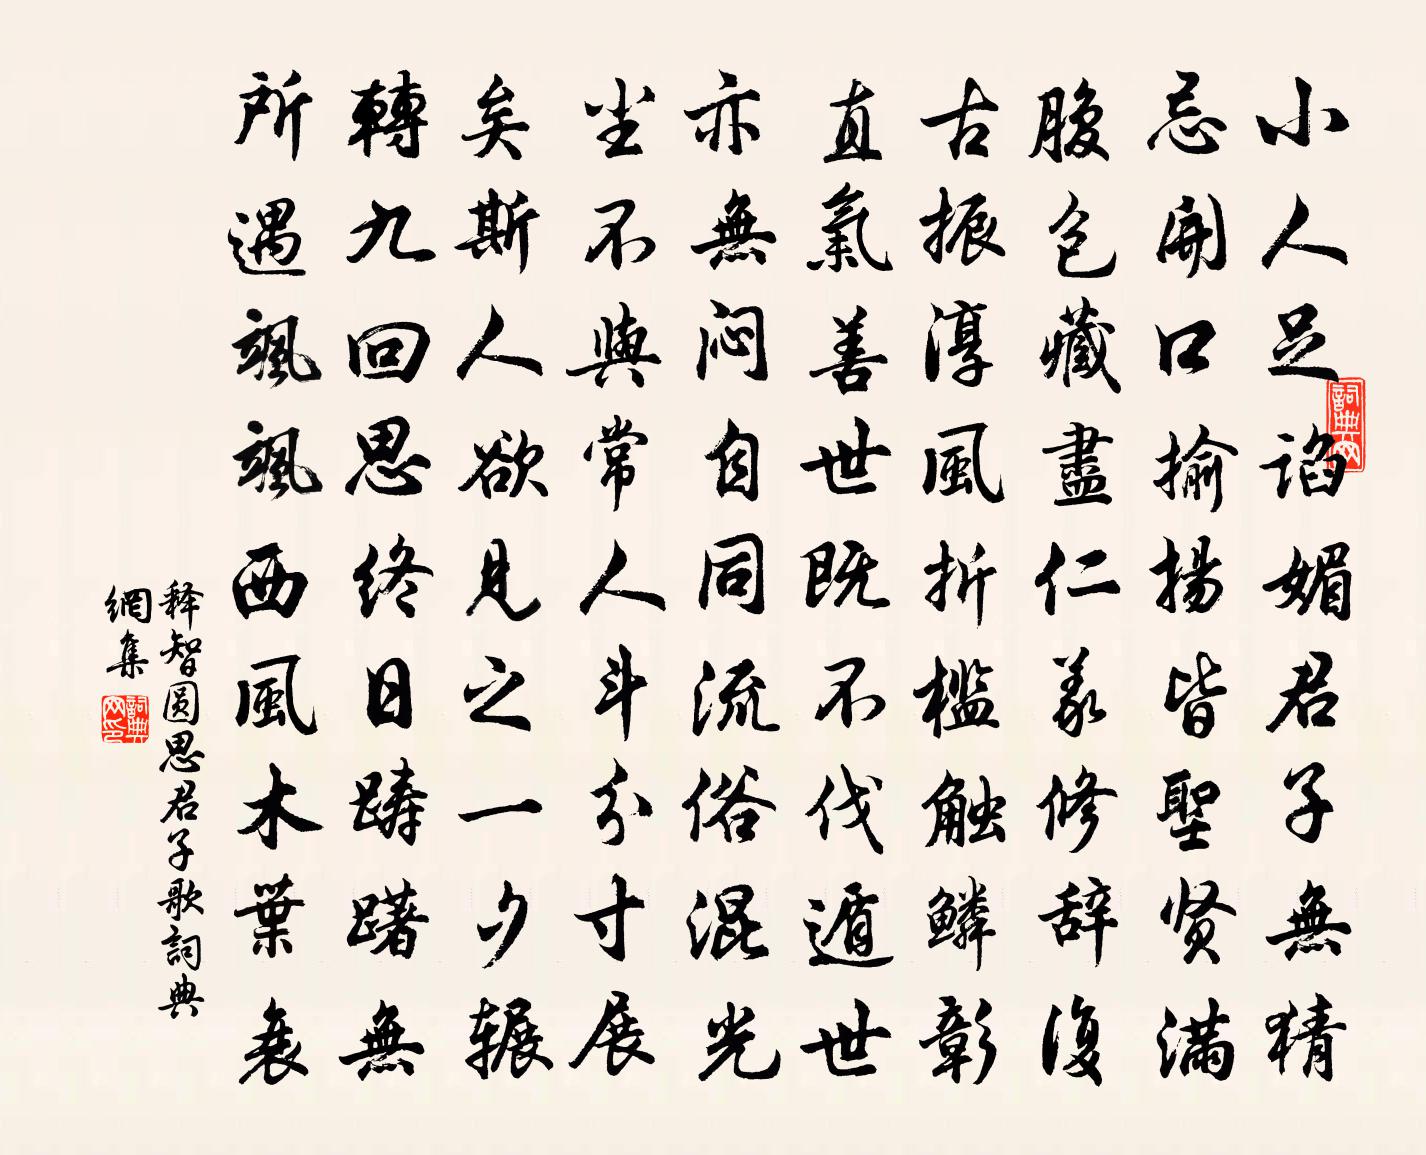 小人足谄媚君子無猜
忌開口揄揚皆聖贤满
腹包藏盡仁義修辞復
古振淳風折檻触鳞彰
直氣善世既不伐遁世
亦無闷自同流俗混光
坐不與常人斗分寸展
矣斯人欲見之一夕辗
轉九回思终日踌躇無
所遇颯颯西風木葉衰
释智圆思君子歌詞典
網集
詞典网
詞典网印